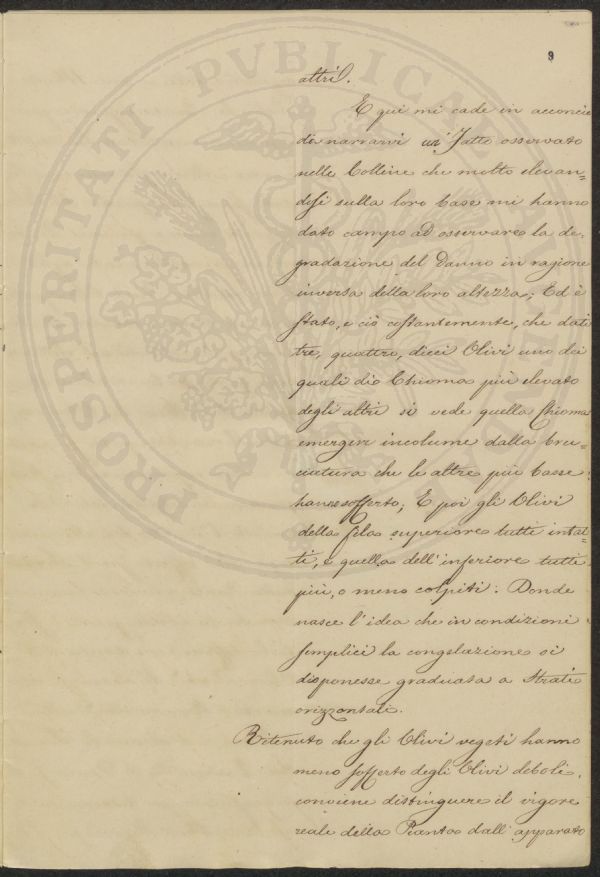 9
altri.
E qui mi cade in acconcio
di narrarvi un' fatto osservato
nelle Colline che molto elevan=
dosi sulla loro base mi hanno
dato campo ad osservare la de-
gradazione del Danno in ragione
inversa della loro altezza; Ed è
stato, e ciò costantemente, che dati
tre, quattro, dieci Olivi uno dei
quali di Chioma più elevato
degli altri si vede quella Chioma
emergere incolume dalla bru=
ciatura che le altre più basse
hanno sofferto; E poi gli Olivi
della fila superiore tutti intat=
ti, e quella dell' inferiore tutti
più, o meno colpiti: Donde
nasce l' idea che in condizioni
semplici la congelazione si
disponesse graduata a Strati
orizzontali.
Ritenuto che gli Olivi vegeti hanno
meno sofferto degli Olivi deboli,
conviene distinguere il vigore
reale della Pianta dall' apparato
PROSPERITATI PVBLICAE